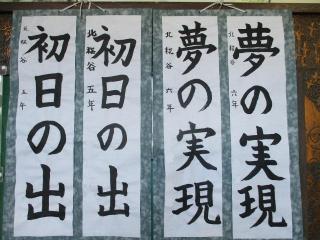 夢の実現
北糀谷 六年
夢の実現
北糀谷 六年
初日の出
北糀谷 五年
初日の出
北糀谷 五年